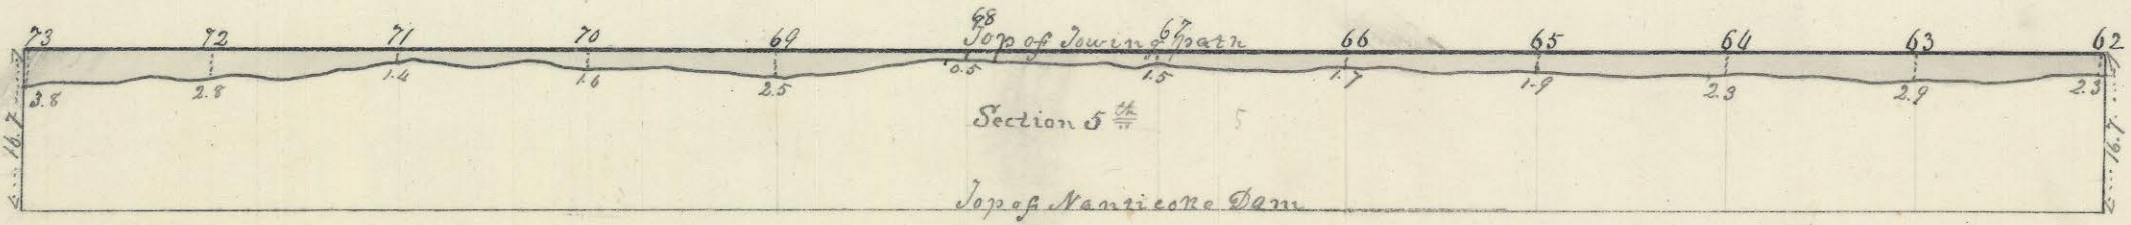 73 72 71 70 69 68 67 66 65 64 63 62
Top of Towing path
3.8 2.8 1.4 1.6 2.5 0.5 1.5 1.7 1.9 2.3 2.9 2.3
Section 5th 5
16.7 16.7
Top of Nanticoke Dam